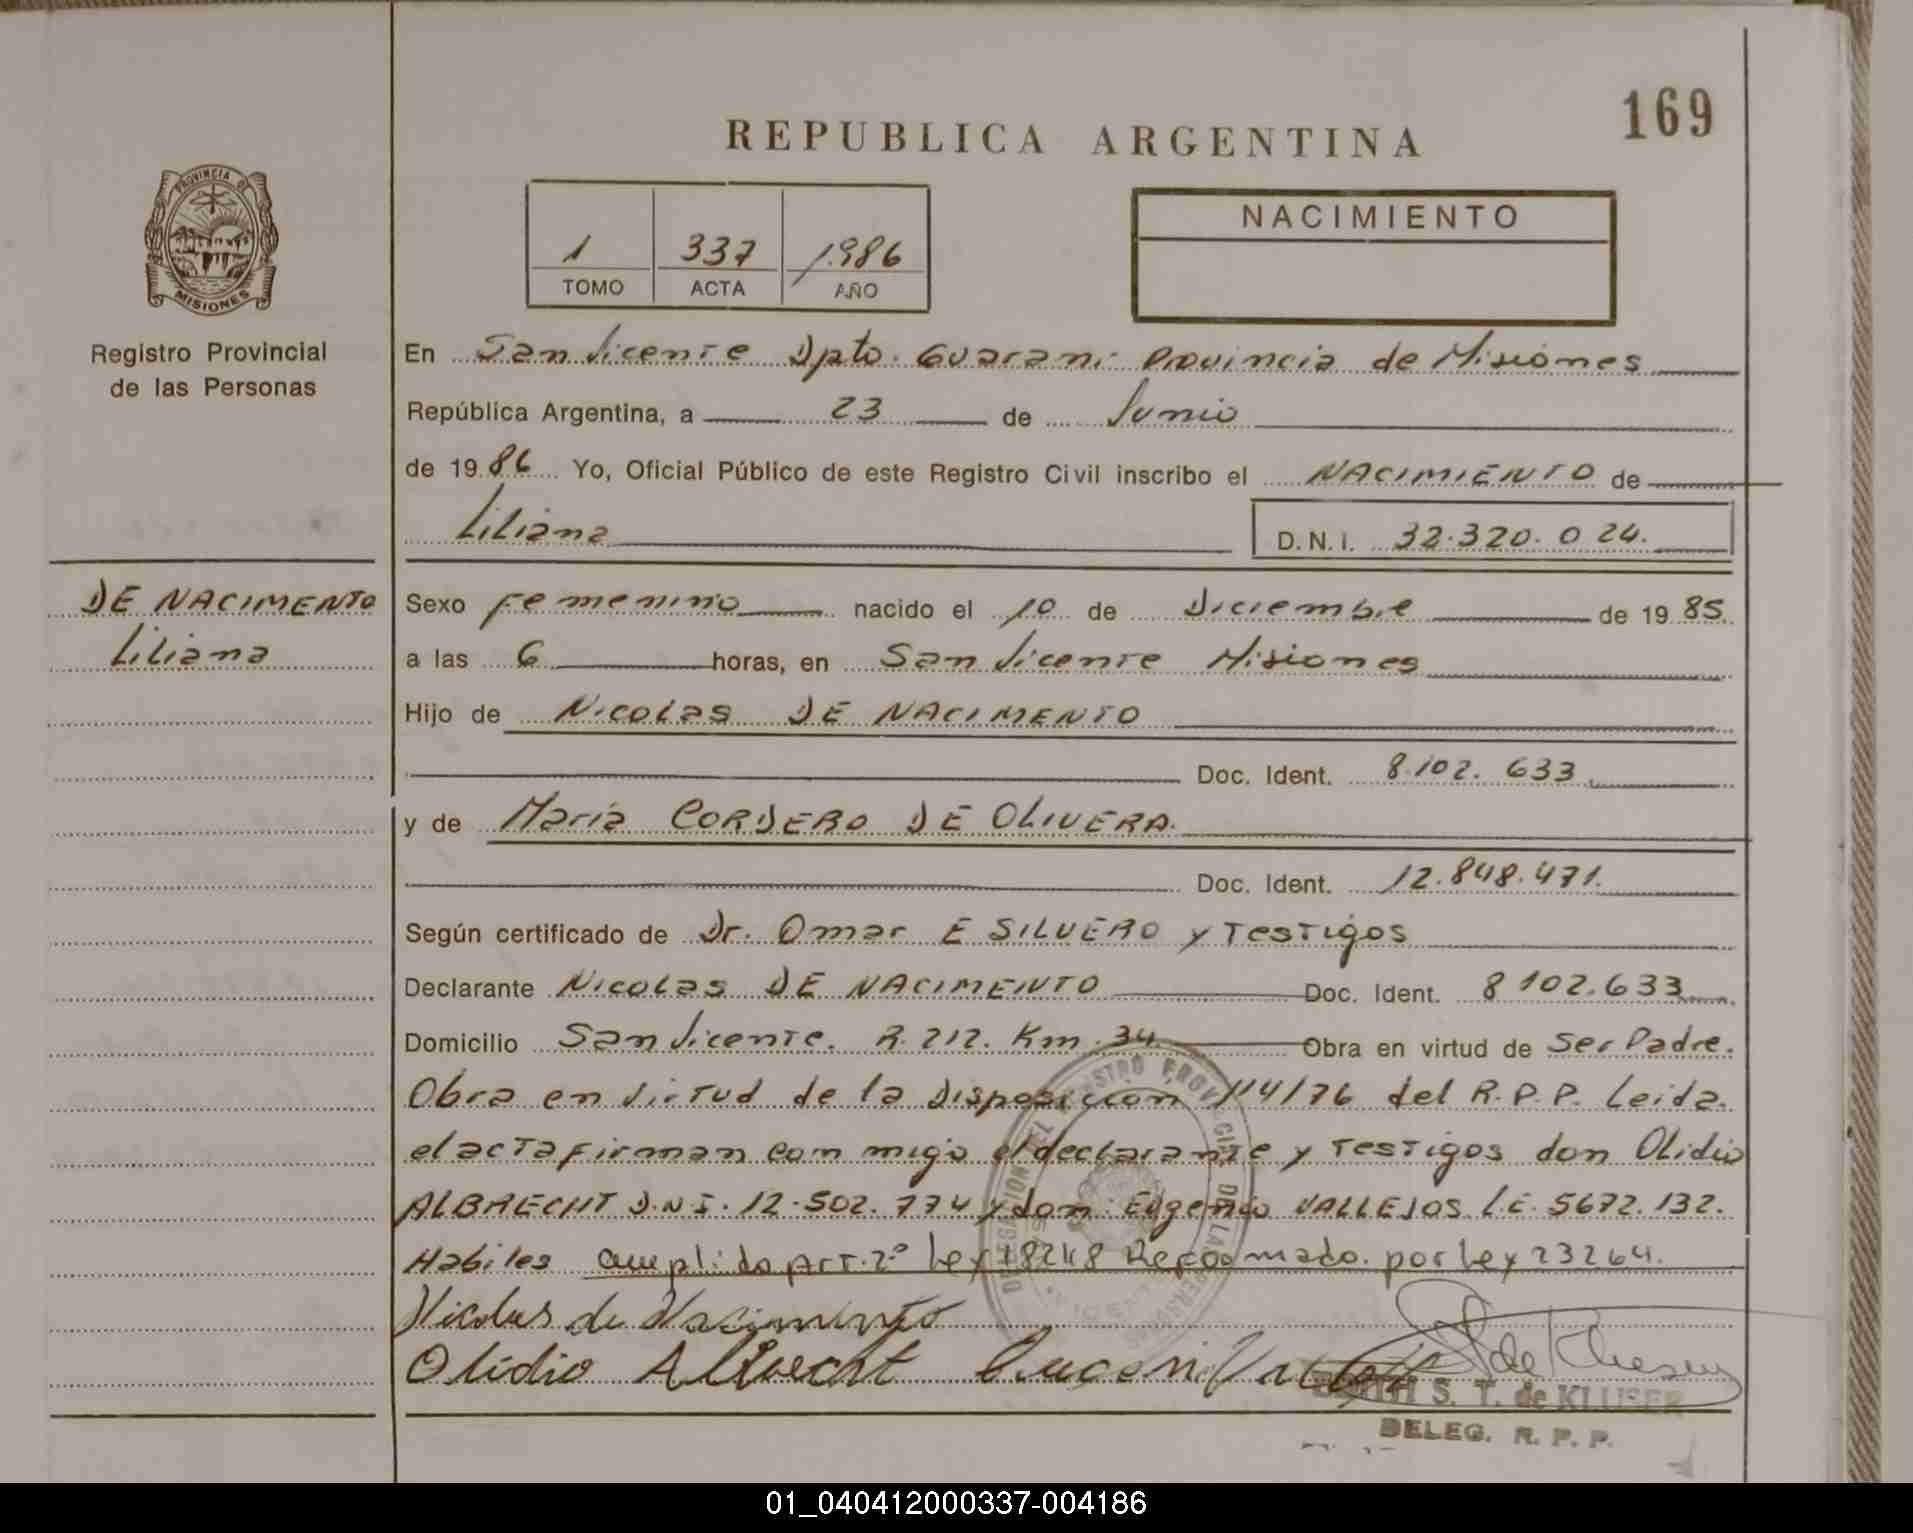 169
REPUBLICA ARGENTINA
PROVINCIA DE
MISIONES
Registro Provincial
de las Personas
1 337 1.986
TOMO ACTA AÑO
NACIMIENTO
En San Vicente Dpto. Guarani Provincia de Misiones
República Argentina, a 23 de Junio
de 1986 Yo, Oficial Público de este Registro Civil inscribo el NACIMIENTO de
Liliana D.N.I. 32.320.024.
DE NACIMENTO
Liliana
Sexo femenino nacido el 10 de Diciembre de 1985
a las 6 horas, en San Vicente Misiones
Hijo de Nicolas DE NACIMENTO
Doc. Ident. 8.102.633
y de Maria CORDERO DE OLIVERA.
Doc. Ident. 12.848.471.
Según certificado de Dr. Omar E SILVERO y Testigos
Declarante Nicolas DE NACIMENTO Doc. Ident. 8 102.633
Domicilio San Vicente. R. 212. Km. 34 Obra en virtud de Ser Padre.
Obra en Virtud de la Disposición 114/76 del R.P.P. Leida.
el acta firman con migo el declarante y Testigos don Olidio
ALBRECHT D.N.I. 12.502.774 y don Eugenio VALLEJOS L.E. 5672.132.
Habiles cumplido Art. 2° Ley 18248 Reformado. por Ley 23264.
Nicolas de Nacimento
Olidio Albrecht
S. T. de KLUSER
DELEG. R. P. P.
01_040412000337-004186